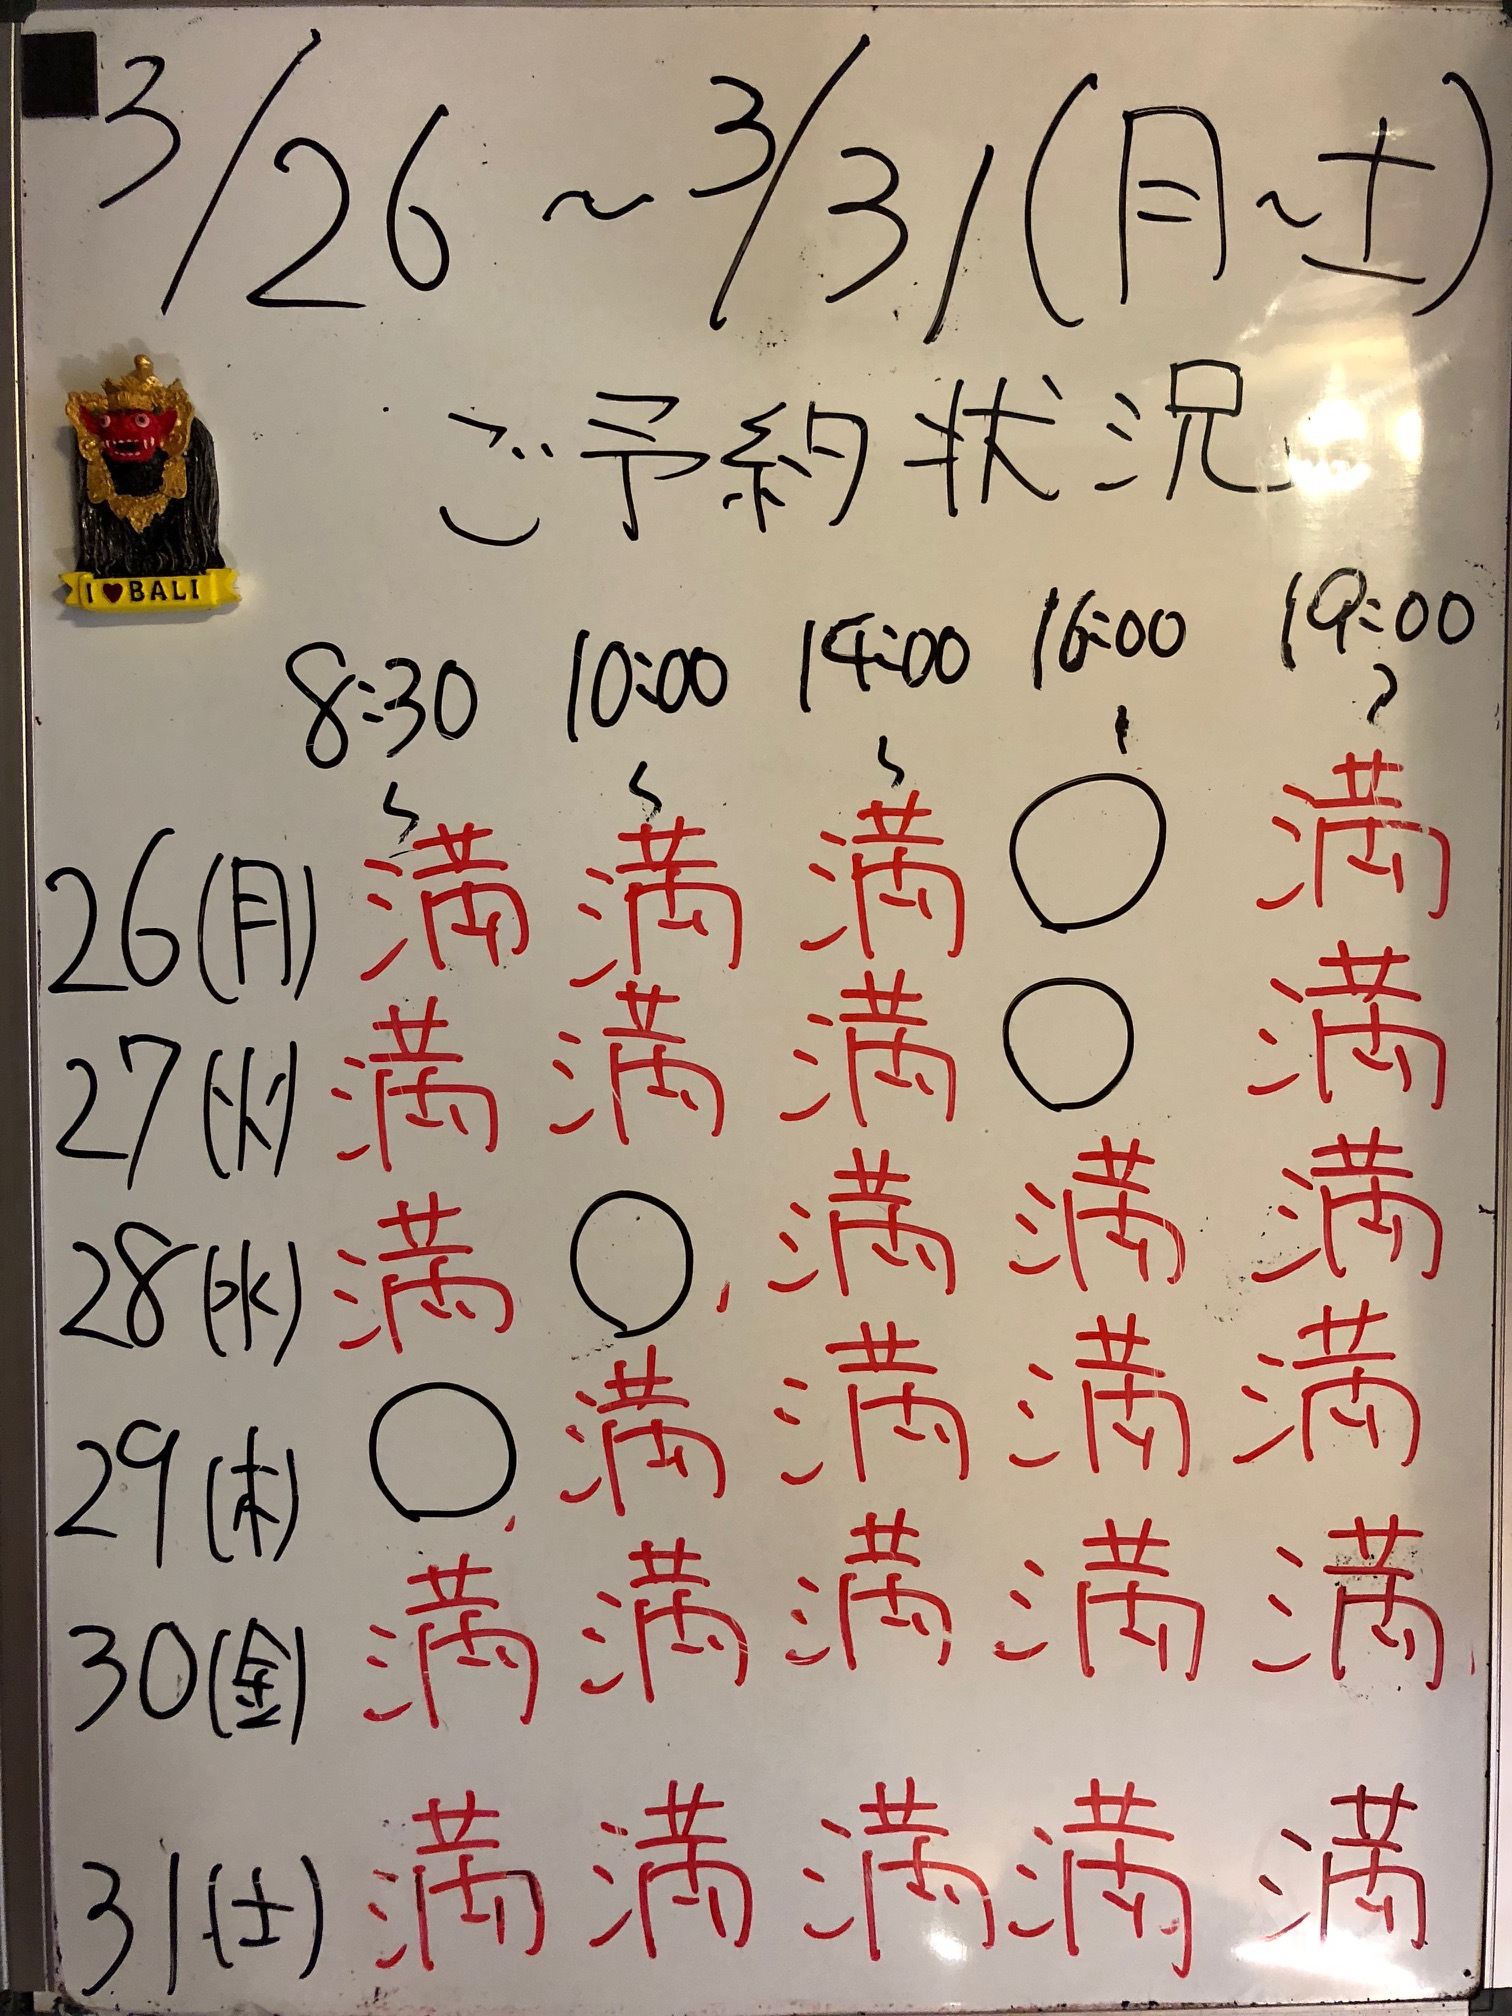 3/26～3/31(月～土)
ご予約状況
I ♥ BALI
8:30～ 10:00～ 14:00～ 16:00～ 19:00～
26(月) 満 満 満 ○ 満
27(火) 満 満 満 ○ 満
28(水) 満 ○ 満 満 満
29(木) ○ 満 満 満 満
30(金) 満 満 満 満 満
31(土) 満 満 満 満 満